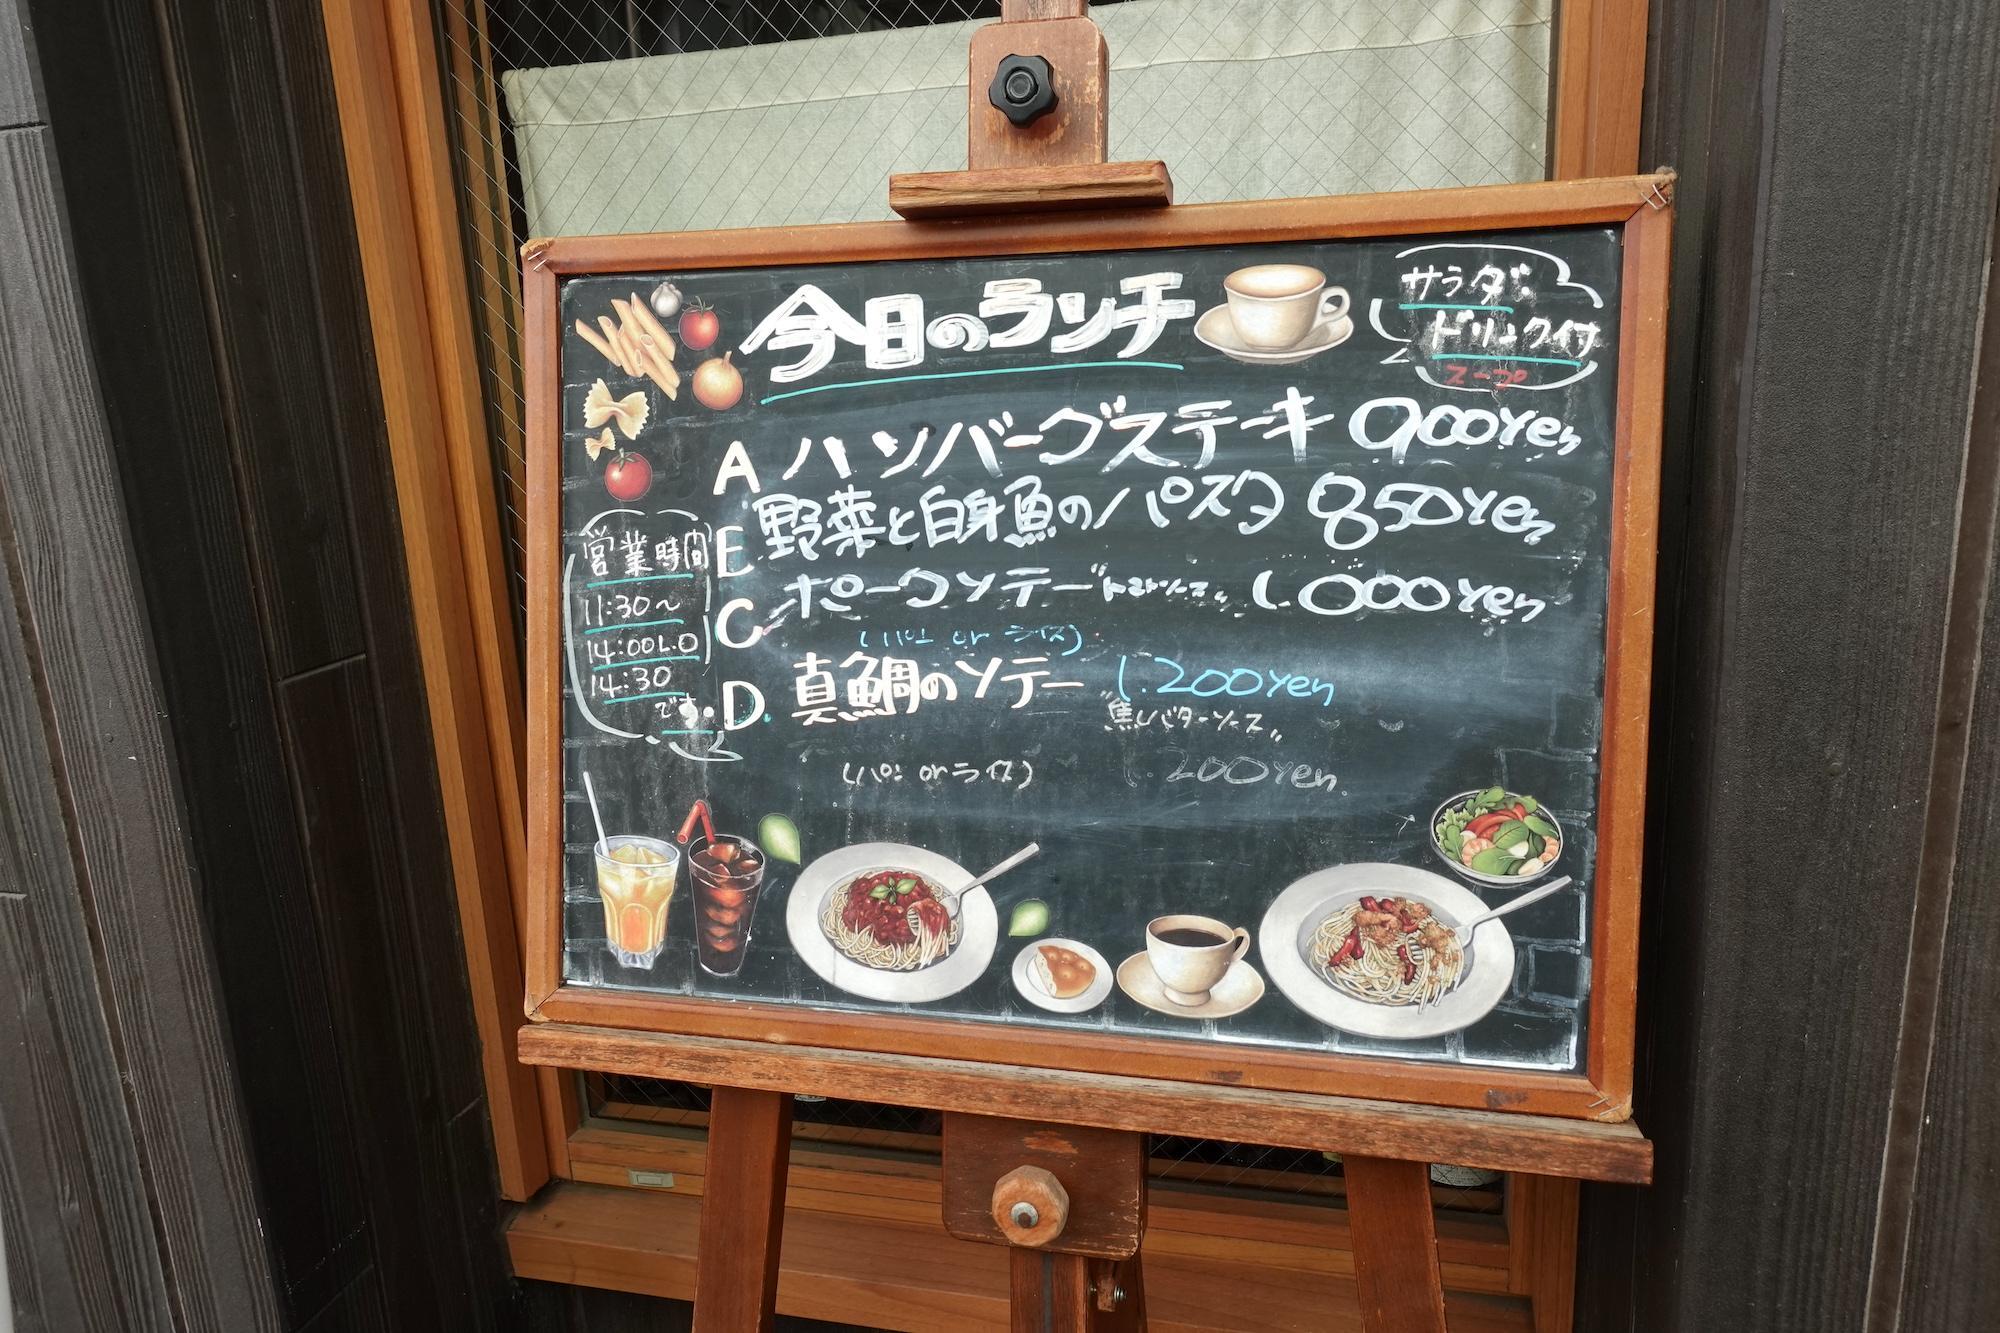 今日のランチ
サラダ
ドリンク付
スープ
A ハンバーグステーキ 900yen
E 野菜と白身魚のパスタ 850yen
C ポークソテー"トマトソース" 1.000yen
(パン or ライス)
D 真鯛のソテー 1.200yen
"焦しバターソース"
(パン or ライス) 1.200yen
営業時間
11:30~
14:00L.O
14:30
です。